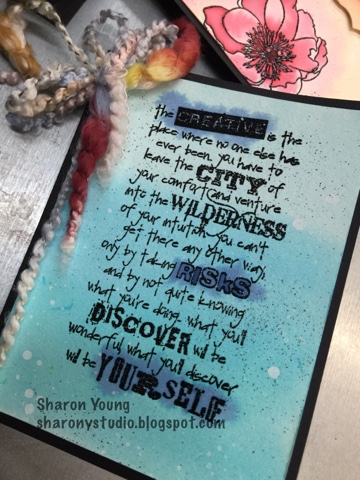 the CREATIVE is the
place where no one else has
ever been. you have to
leave the CITY of
your comfort and venture
into the WILDERNESS
of your intuition. you can't
get there any other way.
only by taking RISKS
and by not quite knowing
what you're doing. what you'll
DISCOVER will be
wonderful. what you'll discover
will be YOURSELF
Sharon Young
sharonystudio.blogspot.com